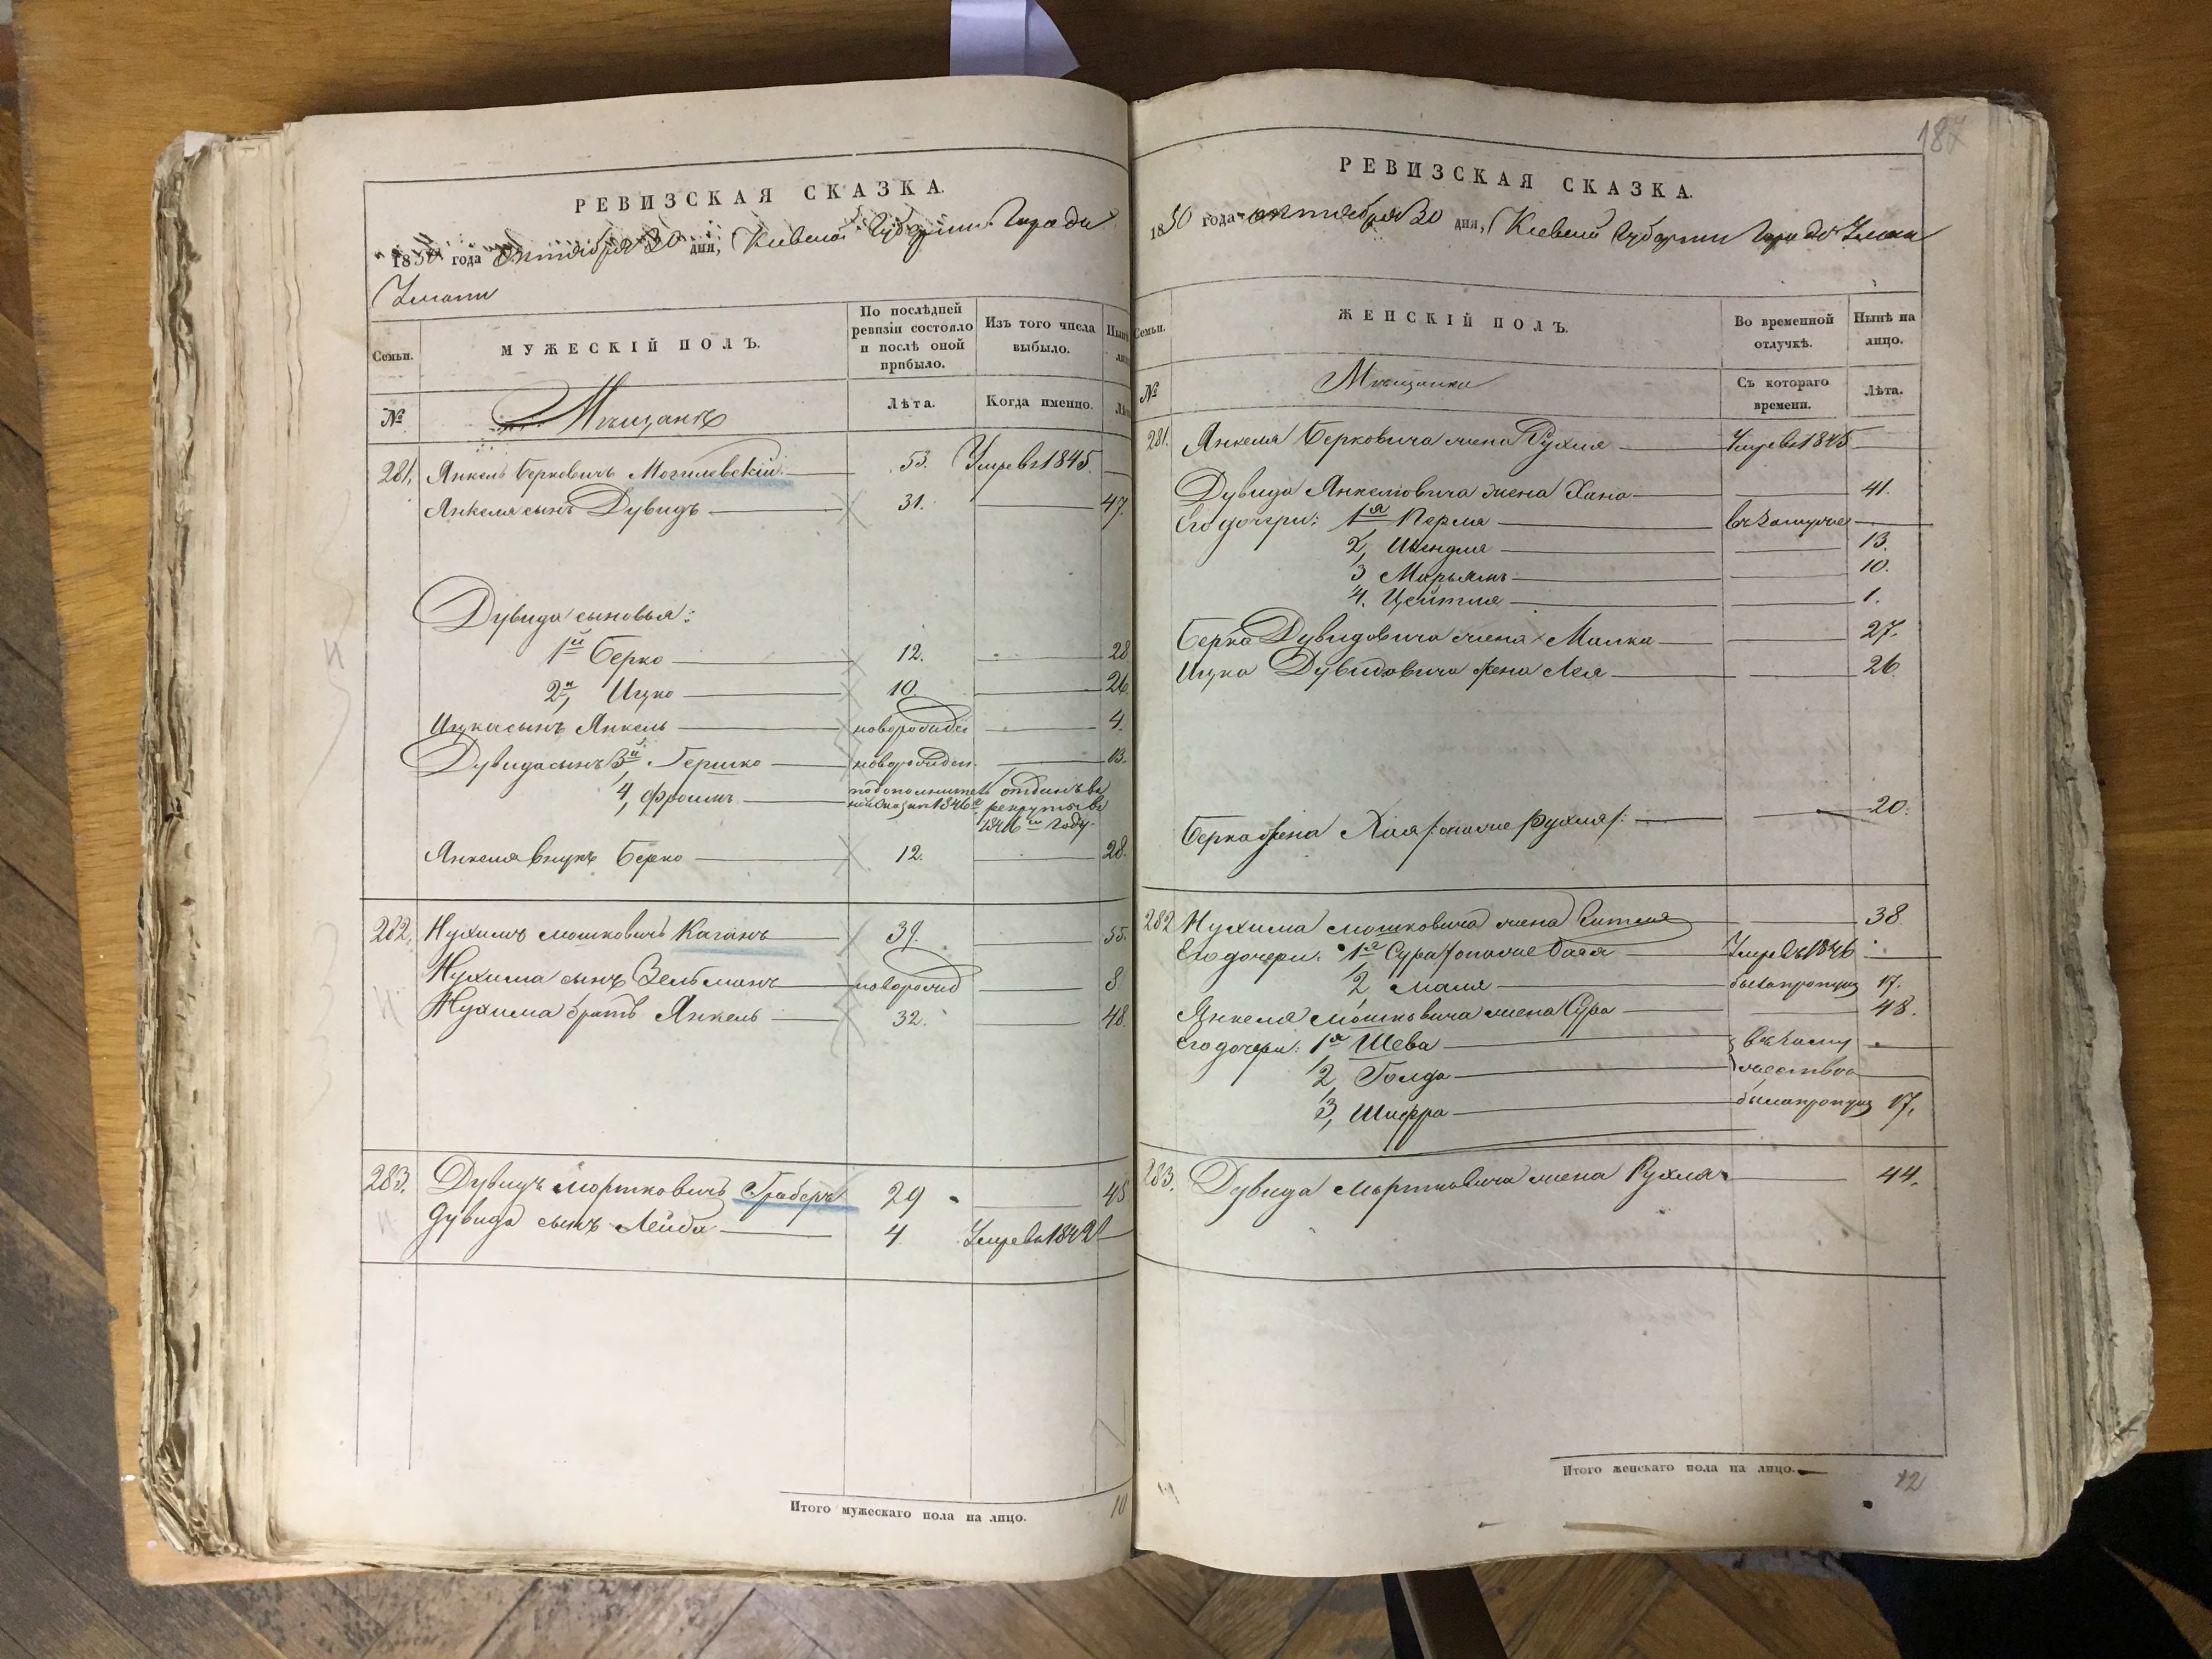 РЕВИЗСКАЯ СКАЗКА.
1850 года октября 30 дня, Киевской Губернии Города
Умани
Семьи.
МУЖЕСКІЙ ПОЛЪ.
По послѣдней ревизіи состояло и послѣ оной прибыло.
Изъ того числа выбыло.
№
Мѣщане
Лѣта.
Когда именно.
281, Янкель Берковичъ Могилевскій 53. Умре въ 1845
Янкеля сынъ Дувидъ 31. 47.
Дувида сыновья:
1й Берко 12. 28
2й, Ицко 10. 26
Ицка сынъ Янкель новорожден 4.
Дувида сынъ 3й Гершко новорожден. 13.
4, Фроимъ по дополнительной сказкѣ 1846 отданъ въ рекруты въ 1846м году.
Янкеля внукъ Берко 12. 28.
282, Нухимъ Мошковичъ Каганъ 39. 55.
Нухима сынъ Зельманъ новорожд 8
Нухима братъ Янкель 32. 48
283, Дувидъ Мортковичъ Граберъ 29 45
Дувида сынъ Лейба 4 Умре въ 1842
Итого мужескаго пола на лицо. 10
187
РЕВИЗСКАЯ СКАЗКА.
1850 года октября 30 дня, Киевской Губернии Города Умани
Семьи.
ЖЕНСКІЙ ПОЛЪ.
Во временной отлучкѣ.
Нынѣ на лицо.
№
Мѣщанки
Съ котораго времени.
Лѣта.
281. Янкеля Берковича жена Рухля Умре въ 1845
Дувида Янкелювича жена Хана 41.
Его дочери: 1я Перля въ замужес
2, Шендля 13.
3 Марьямъ 10.
4. Цейтля 1.
Берка Дувидовича жена Малка 27.
Ицка Дувидовича жена Лея 26
Берка жена Хая /: она же Рухля /: 20.
282 Нухима Мошковича жена 38.
Его дочери: 1я Сура / она же Бася Умре въ 1846
2, Маля была пропущ 17.
Янкеля Мошковича жена Сура 48.
Его дочери: 1я Шева въ замуж
2, Голда жествѣ
3, Шифра была пропущ 17.
283. Дувида Мортковича жена Рухля 44.
Итого женскаго пола на лицо. 12